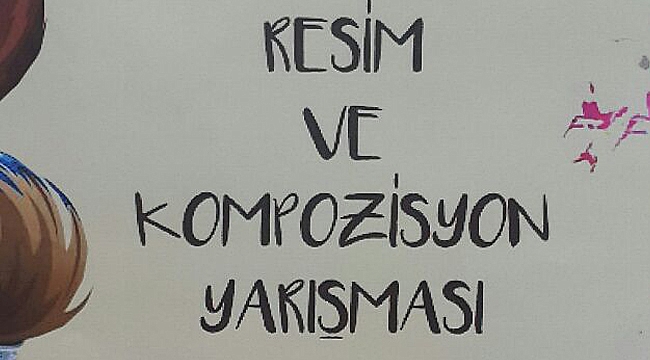 RESİM
VE
KOMPOZİSYON
YARIŞMASI